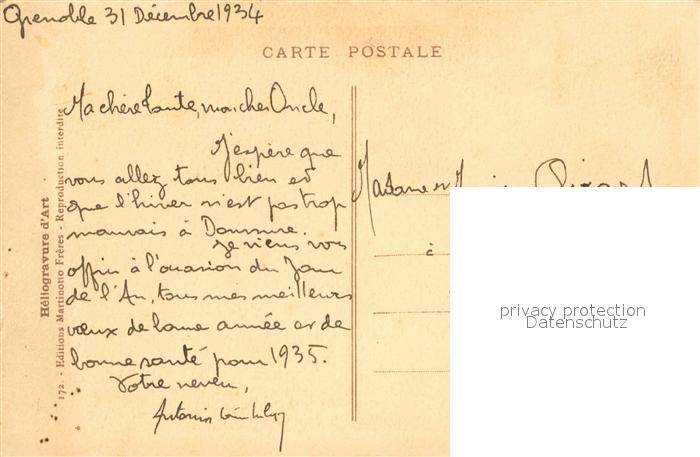 Grenoble 31 Décembre 1934
CARTE POSTALE
Ma chère Tante, mon cher Oncle,
J'espère que
vous allez tous bien et
que l'hiver n'est pas trop
mauvais à
Je viens vous
offrir à l'occasion du Jour
de l'An, tous mes meilleurs
vœux de bonne année et de
bonne santé pour 1935.
Votre neveu,
Madame
à
Héliogravure d'Art
172. - Editions Martinotto Frères - Reproduction interdite
privacy protection
Datenschutz